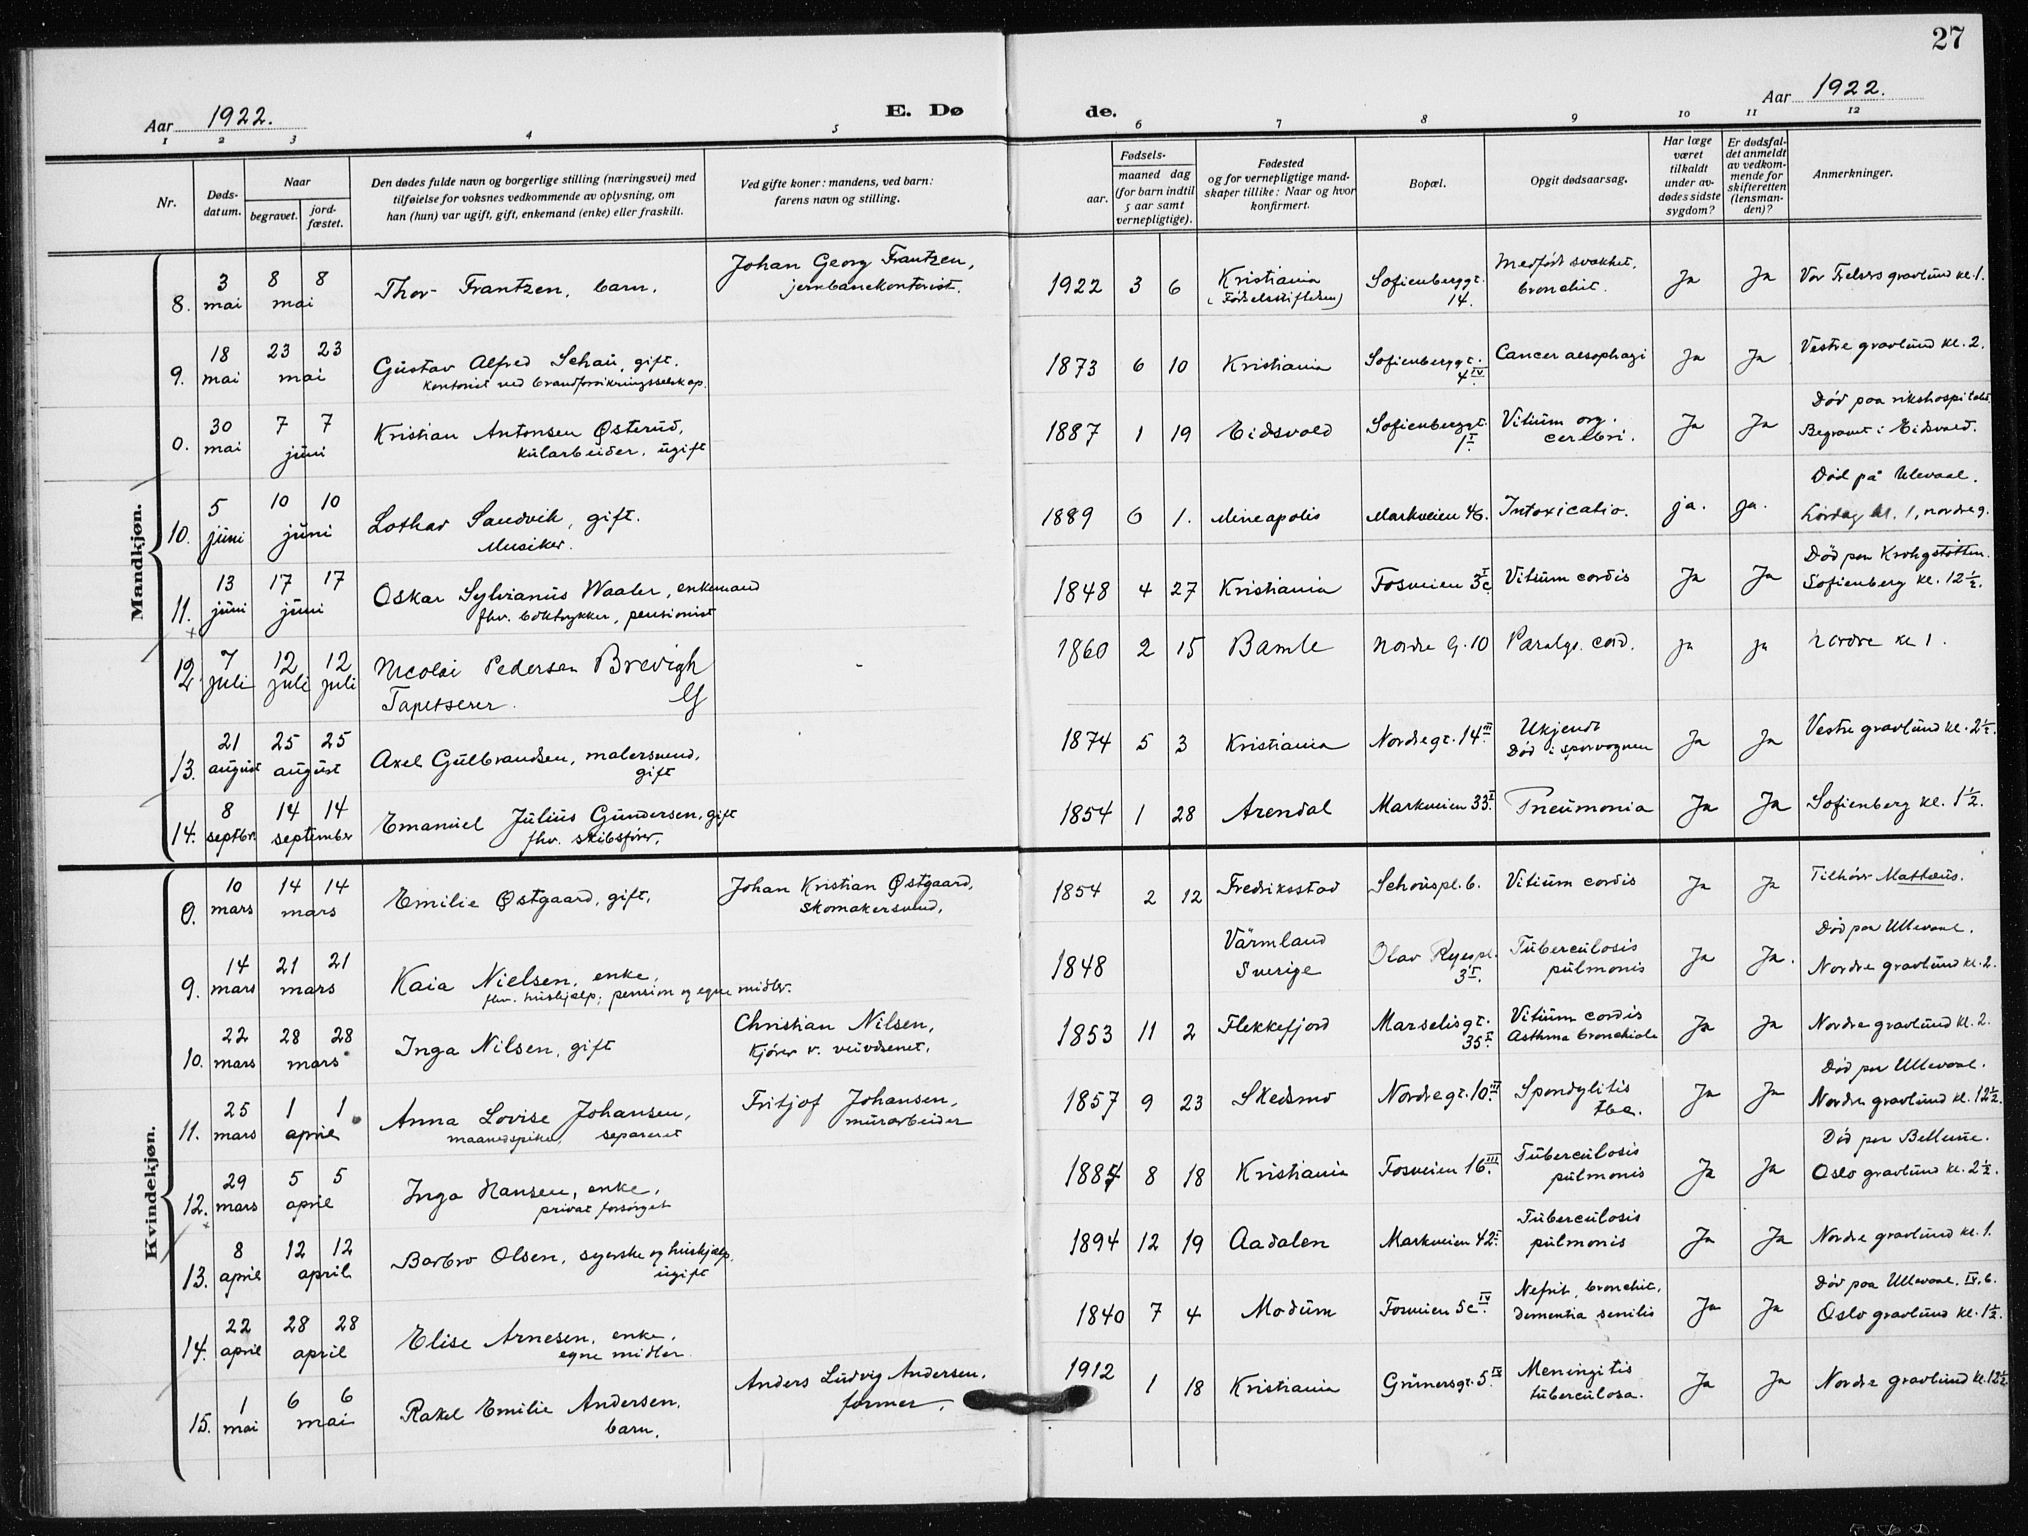 27
Aar 1922.
E. Dø
de.
Aar 1922.
1 2 3 4 5 6 7 8 9 10 11 12
Nr.
Døds-
datum.
Naar
begravet.
jord-
fæstet.
Den dødes fulde navn og borgerlige stilling (næringsvei) med
tilføielse for voksnes vedkommende av oplysning, om
han (hun) var ugift, gift, enkemand (enke) eller fraskilt.
Ved gifte koner: mandens, ved barn:
farens navn og stilling.
Fødsels-
aar.
maaned dag
(for barn indtil
5 aar samt
vernepligtige).
Fødested
og for vernepligtige mand-
skaper tillike: Naar og hvor
konfirmert.
Bopæl.
Opgit dødsaarsag.
Har læge
været
tilkaldt
under av-
dødes sidste
sygdom?
Er dødsfal-
det anmeldt
av vedkom-
mende for
skifteretten
(lensman-
den)?
Anmerkninger.
Mandkjøn.
8. 3 mai 8 8 mai Thor Frantzen, barn. Johan Georg Frantzen,
jernbanekontorist. 1922 3 6 Kristiania
(Fødselsstiftelsen) Sofienberggt.
14. Medfødt svakhet,
bronchit. Ja Ja Vor Frelsers gravlund kl. 1.
9. 18 mai 23 23 mai Gustav Alfred Schau, gift.
Kontorist ved brandforsikringsselskap. 1873 6 10 Kristiania Sofienberggt.
4 IV. Cancer aesophagi Ja Ja Vestre gravlund kl. 2.
0. 30 mai 7 7 juni Kristian Antonsen Østerud,
kularbeider, ugift 1887 1 19 Eidsvold Sofienberggt.
1 I. Vitium org.
cerebri. Ja Ja Død paa rikshospitalet.
Begravet i Eidsvold.
10. 5 juni 10 10 juni Lothar Sandvik, gift.
Musiker. 1889 6 1. Mineapolis Markveien 46. Intoxicatio. ja. ja. Død på Ulevaal.
Lørdag kl. 1, nordre g.
11. 13 juni 17 17 juni Oskar Sylvianus Waaler, enkemand
fhv. boktrykker, pensionist 1848 4 27 Kristiania Fosveien 3c I Vitium cordis Ja Ja Død paa Krohgstøtten.
Sofienberg kl. 12 ½.
12 7 juli 12 juli 12 juli Nicolai Pedersen Brevigh
Tapetserer. 1860 2 15 Bamle Nordre G. 10 Paralys. cord. ja ja Nordre kl 1.
13. 21 august 25 25 august Axel Gulbrandsen, malersvend,
gift 1874 5 3 Kristiania Nordregt. 14 III. Ukjendt
Død i sporvognen Ja Ja Vestre gravlund kl. 2 ½.
14. 8 septbr. 14 14 september Emanuel Julius Gundersen, gift
fhv. skibsfører. 1854 1 28 Arendal Markveien 33 I. Pneumonia Ja Ja Sofienberg kl. 1 ½.
Kvindekjøn.
0. 10 mars 14 14 mars Emilie Østgaard, gift, Johan Kristian Østgaard,
skomakersvend, 1854 2 12 Fredriksstad Schouspl. 6. Vitium cordis Ja Ja Tilhørr Mathæus.
9. 14 mars 21 21 mars Kaia Nielsen, enke,
fhv. hushjælp; pension og egne midler. 1848 Värmland
Sverige Olav Ryespl.
3 I. Tuberculosis
pulmonis Ja Ja. Død paa Ullevaal.
Nordre gravlund kl. 2.
10. 22 mars 28 28 mars Inga Nilsen, gift Christian Nilsen,
kjører v. veivæsenet, 1853 11 2 Flekkefjord Marselisgt.
35 I. Vitium cordis
Asthma bronchiale Ja Ja Nordre gravlund kl. 2.
11. 25 mars 1 1 april Anna Lovise Johansen,
maanedspike, separeret Fritjof Johansen,
murarbeider 1857 9 23 Skedsmo Nordregt. 10 III. Spondylitis
tbc. Ja Ja Død paa Ullevaal.
Nordre gravlund kl. 12 ½.
12. 29 mars 5 5 april Inga Hansen, enke,
privat forsørget 1887 8 18 Kristiania Fosveien 16 III. Tuberculosis
pulmonis Ja Ja Død paa Bellevue.
Oslo gravlund kl. 2 ½.
13. 8 april 12 12 april Barbro Olsen, syerske og hushjælp.
ugift 1894 12 19 Aadalen Markveien 42 I. Tuberculosis
pulmonis Ja Ja Nordre gravlund kl. 1.
14. 22 april 28 28 april Elise Arnesen, enke,
egne midler. 1840 7 4 Modum Fosveien 5c IV. Nefrit, bronchit,
dementia senilis Ja Ja Død paa Ullevaal, IV, 6.
Oslo gravlund kl. 1 ½.
15. 1 mai 6 6 mai Rakel Emilie Andersen,
barn. Anders Ludvig Andersen,
former. 1912 1 18 Kristiania Grünersgt. 5 IV Meningitis
tuberculosa. Ja Ja Nordre gravlund kl. 12 ½